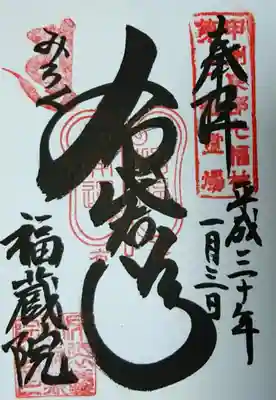 奉拝
甲州東郡七福神
平成三十年
一月三日
布袋尊
みろく
福蔵院